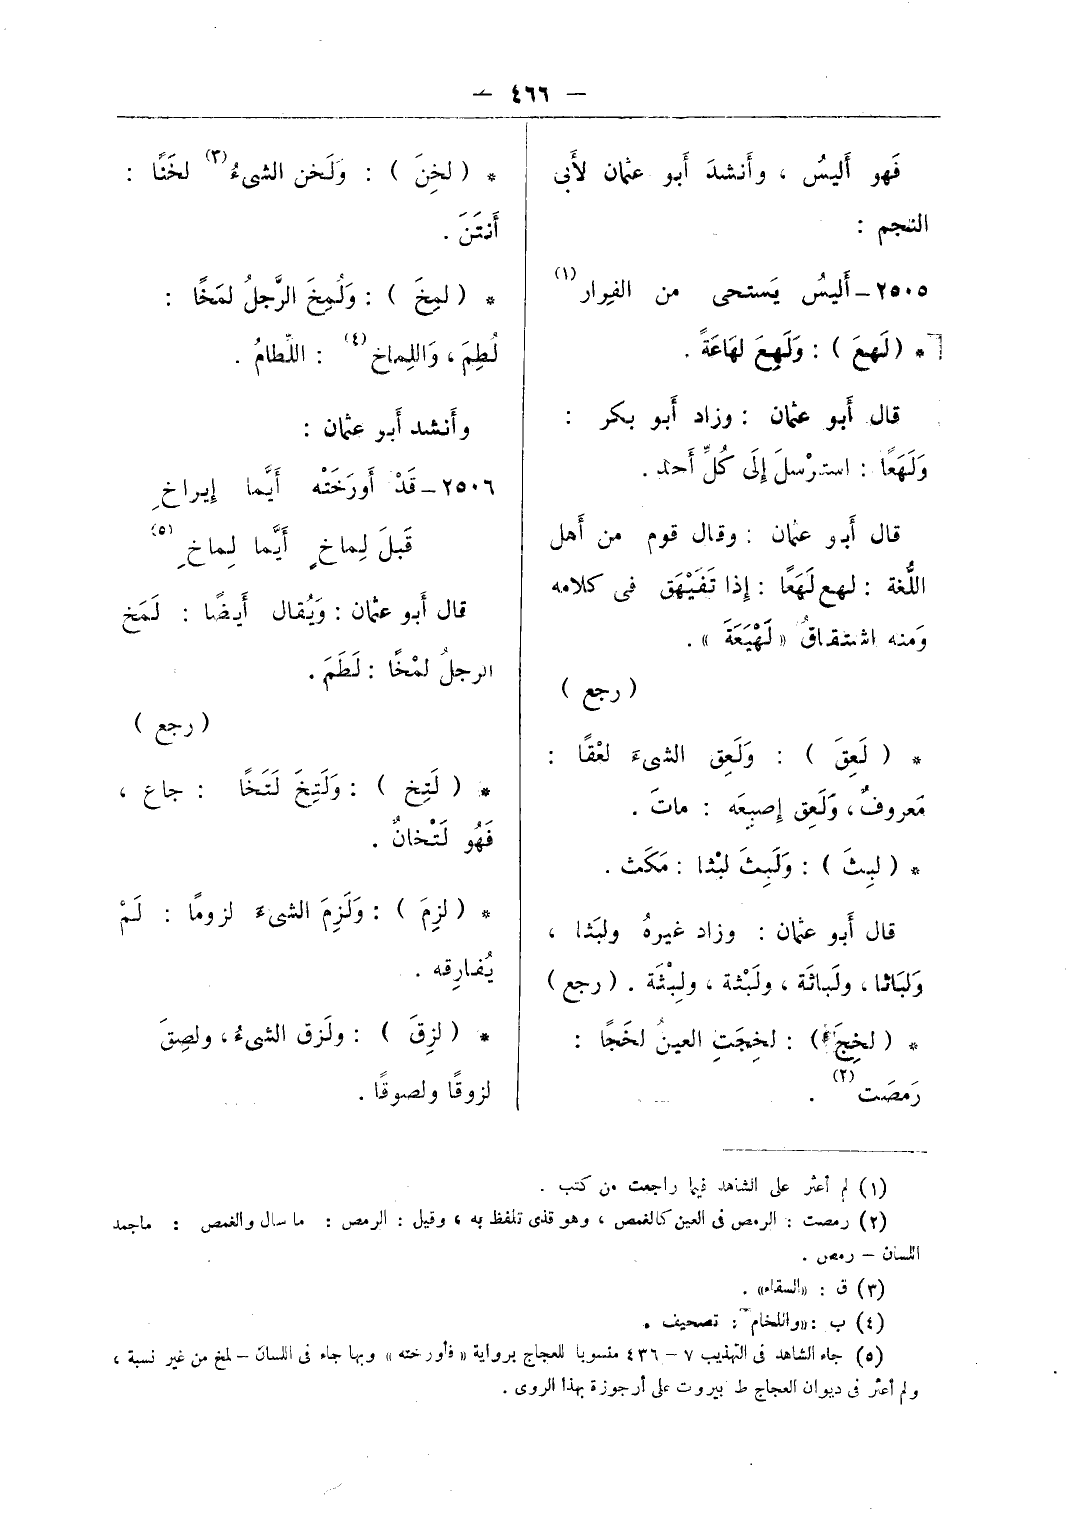 — ٤٦٦ —
فَهو أَليسُ ، وأَنشدَ أَبو عثمان لأَبى
النجم :
٢٥٠٥ – أَليسُ يَستحى من الفِرار (١)
* ( لَهعَ ) : وَلَهِعَ لهَاعَةً .
قال أَبو عثمان : وزاد أَبو بكر :
وَلَهَعًا : استرْسلَ إِلَى كُلِّ أَحد .
قال أَبو عثمان : وقال قوم من أَهل
اللُّغة : لهع لَهَعًا : إِذا تَفَيْهَق فى كلامه
وَمنه اشتقاقُ « لَهْيَعَةَ » .
( رجع )
* ( لَعِقَ ) : وَلَعِق الشىءَ لعْقًا :
مَعروفٌ ، وَلَعِق إِصبعَه : ماتَ .
* ( لبِثَ ) : وَلَبِثَ لبْثا : مَكَث .
قال أَبو عثمان : وزاد غيرهُ ولبَثا ،
وَلبَاثا ، ولَباثَة ، ولَبْثة ، ولبْثَة . ( رجع )
* ( لخِجَ ) : لخِجَتِ العينُ لخَجًا :
رَمصَت (٢) .
* ( لخِنَ ) : وَلَخن الشىءُ (٣) لخَنًا :
أَنتَنَ .
* ( لمِخَ ) : وَلُمِخَ الرَّجلُ لمَخًا :
لُطِمَ ، وَاللِماخ (٤) : اللِّطامُ .
وأَنشد أَبو عثمان :
٢٥٠٦ – قَدْ أَورَخَتْه أَيَّما إِيراخِ
قَبلَ لِماخٍ أَيَّما لِماخِ (٥)
قال أَبو عثمان : وَيُقال أَيضًا : لَمَخ
الرجلُ لمْخًا : لَطَمَ .
( رجع )
* ( لَتِخ ) : وَلَتِخَ لَتَخًا : جاع ،
فَهُو لَتْخانٌ .
* ( لزِمَ ) : وَلَزِمَ الشىءَ لزومًا : لَمْ
يُفارِقه .
* ( لزِقَ ) : ولَزق الشىءُ ، ولصِقَ
لزوقًا ولصوقًا .
(١) لم أعثر على الشاهد فيما راجعت من كتب .
(٢) رمصت : الرمص فى العين كالغمص ، وهو قذى تلفظ به ، وقيل : الرمص : ما سال والغمص : ماجمد
اللسان – رمص .
(٣) ق : «السقاء» .
(٤) ب : «واللخام» : تصحيف .
(٥) جاء الشاهد فى التهذيب ٧ – ٤٣٦ منسوبا للعجاج برواية « فأورخته » وبها جاء فى اللسان – لمخ من غير نسبة ،
ولم أعثر فى ديوان العجاج ط بيروت على أرجوزة بهذا الروى .